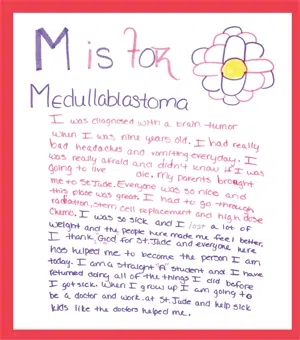 M is for
Medullablastoma
I was diagnosed with a brain tumor
when I was nine years old. I had really
bad headaches and vomiting everyday. I
was really afraid and didn't know if I was
going to live die. My parents brought
me to St. Jude. Everyone was so nice and
this place was great. I had to go through
radiation, stem cell replacement and high dose
chemo. I was so sick and I lost a lot of
weight and the people here made me feel better.
I thank God for St. Jude and everyone here
has helped me to become the person I am
today. I am a straight A student and I have
returned doing all of the things I did before
I got sick. When I grow up I am going to
be a doctor and work at St. Jude and help sick
kids like the doctors helped me.